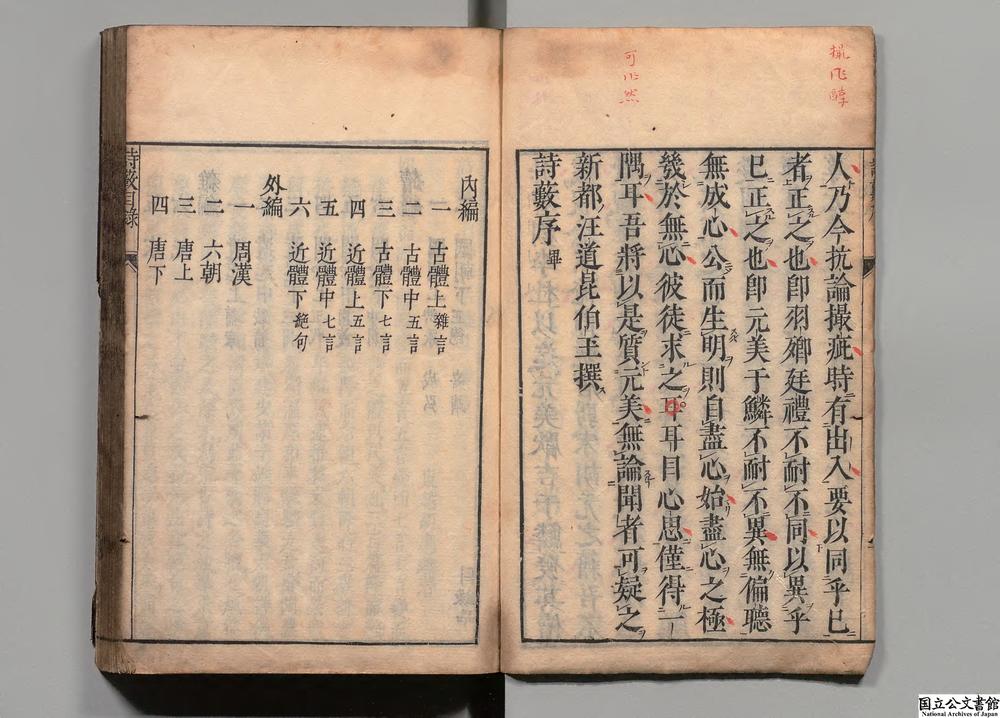 可作然
人乃今抗論撮疵時有出入要以同乎已
者正之也卽羽鄕廷禮不耐不同以異乎
巳正之也卽元美于鱗不耐不異無偏聽
無成心公而生明則自盡心始盡心之極
幾於無心彼徒求之耳耳目心思僅得一
隅耳吾將以是質元美無論聞者可疑之
新都汪道昆伯玉撰
詩藪序畢
內編
一 古體上雜言
二 古體中五言
三 古體下七言
四 近體上五言
五 近體中七言
六 近體下絕句
外編
一 周漢
二 六朝
三 唐上
四 唐下
詩藪目錄
国立公文書館
National Archives of Japan